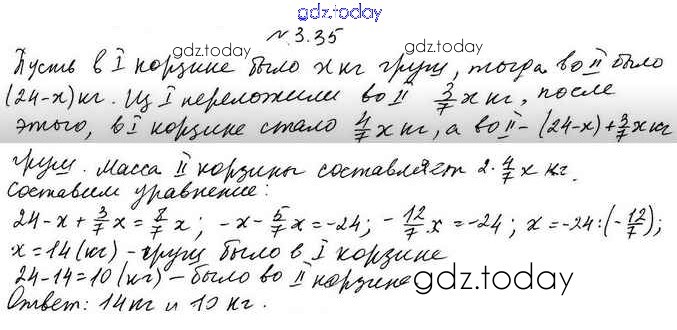 gdz.today
№ 3.35
gdz.today gdz.today
Пусть в I корзине было x кг груш, тогда во II было
(24-x) кг. Из I переложили во II 3/7 x кг, после
этого, в I корзине стало 4/7 x кг, а во II - (24-x)+3/7 x кг
груш. Масса II корзины составляет 2·4/7 x кг.
Составим уравнение:
24-x+3/7 x=8/7 x; -x-5/7 x=-24; -12/7 x=-24; x=-24:(-12/7);
x=14(кг) - груш было в I корзине
24-14=10(кг) - было во II корзине
gdz.today
Ответ: 14 кг и 10 кг.
gdz.today